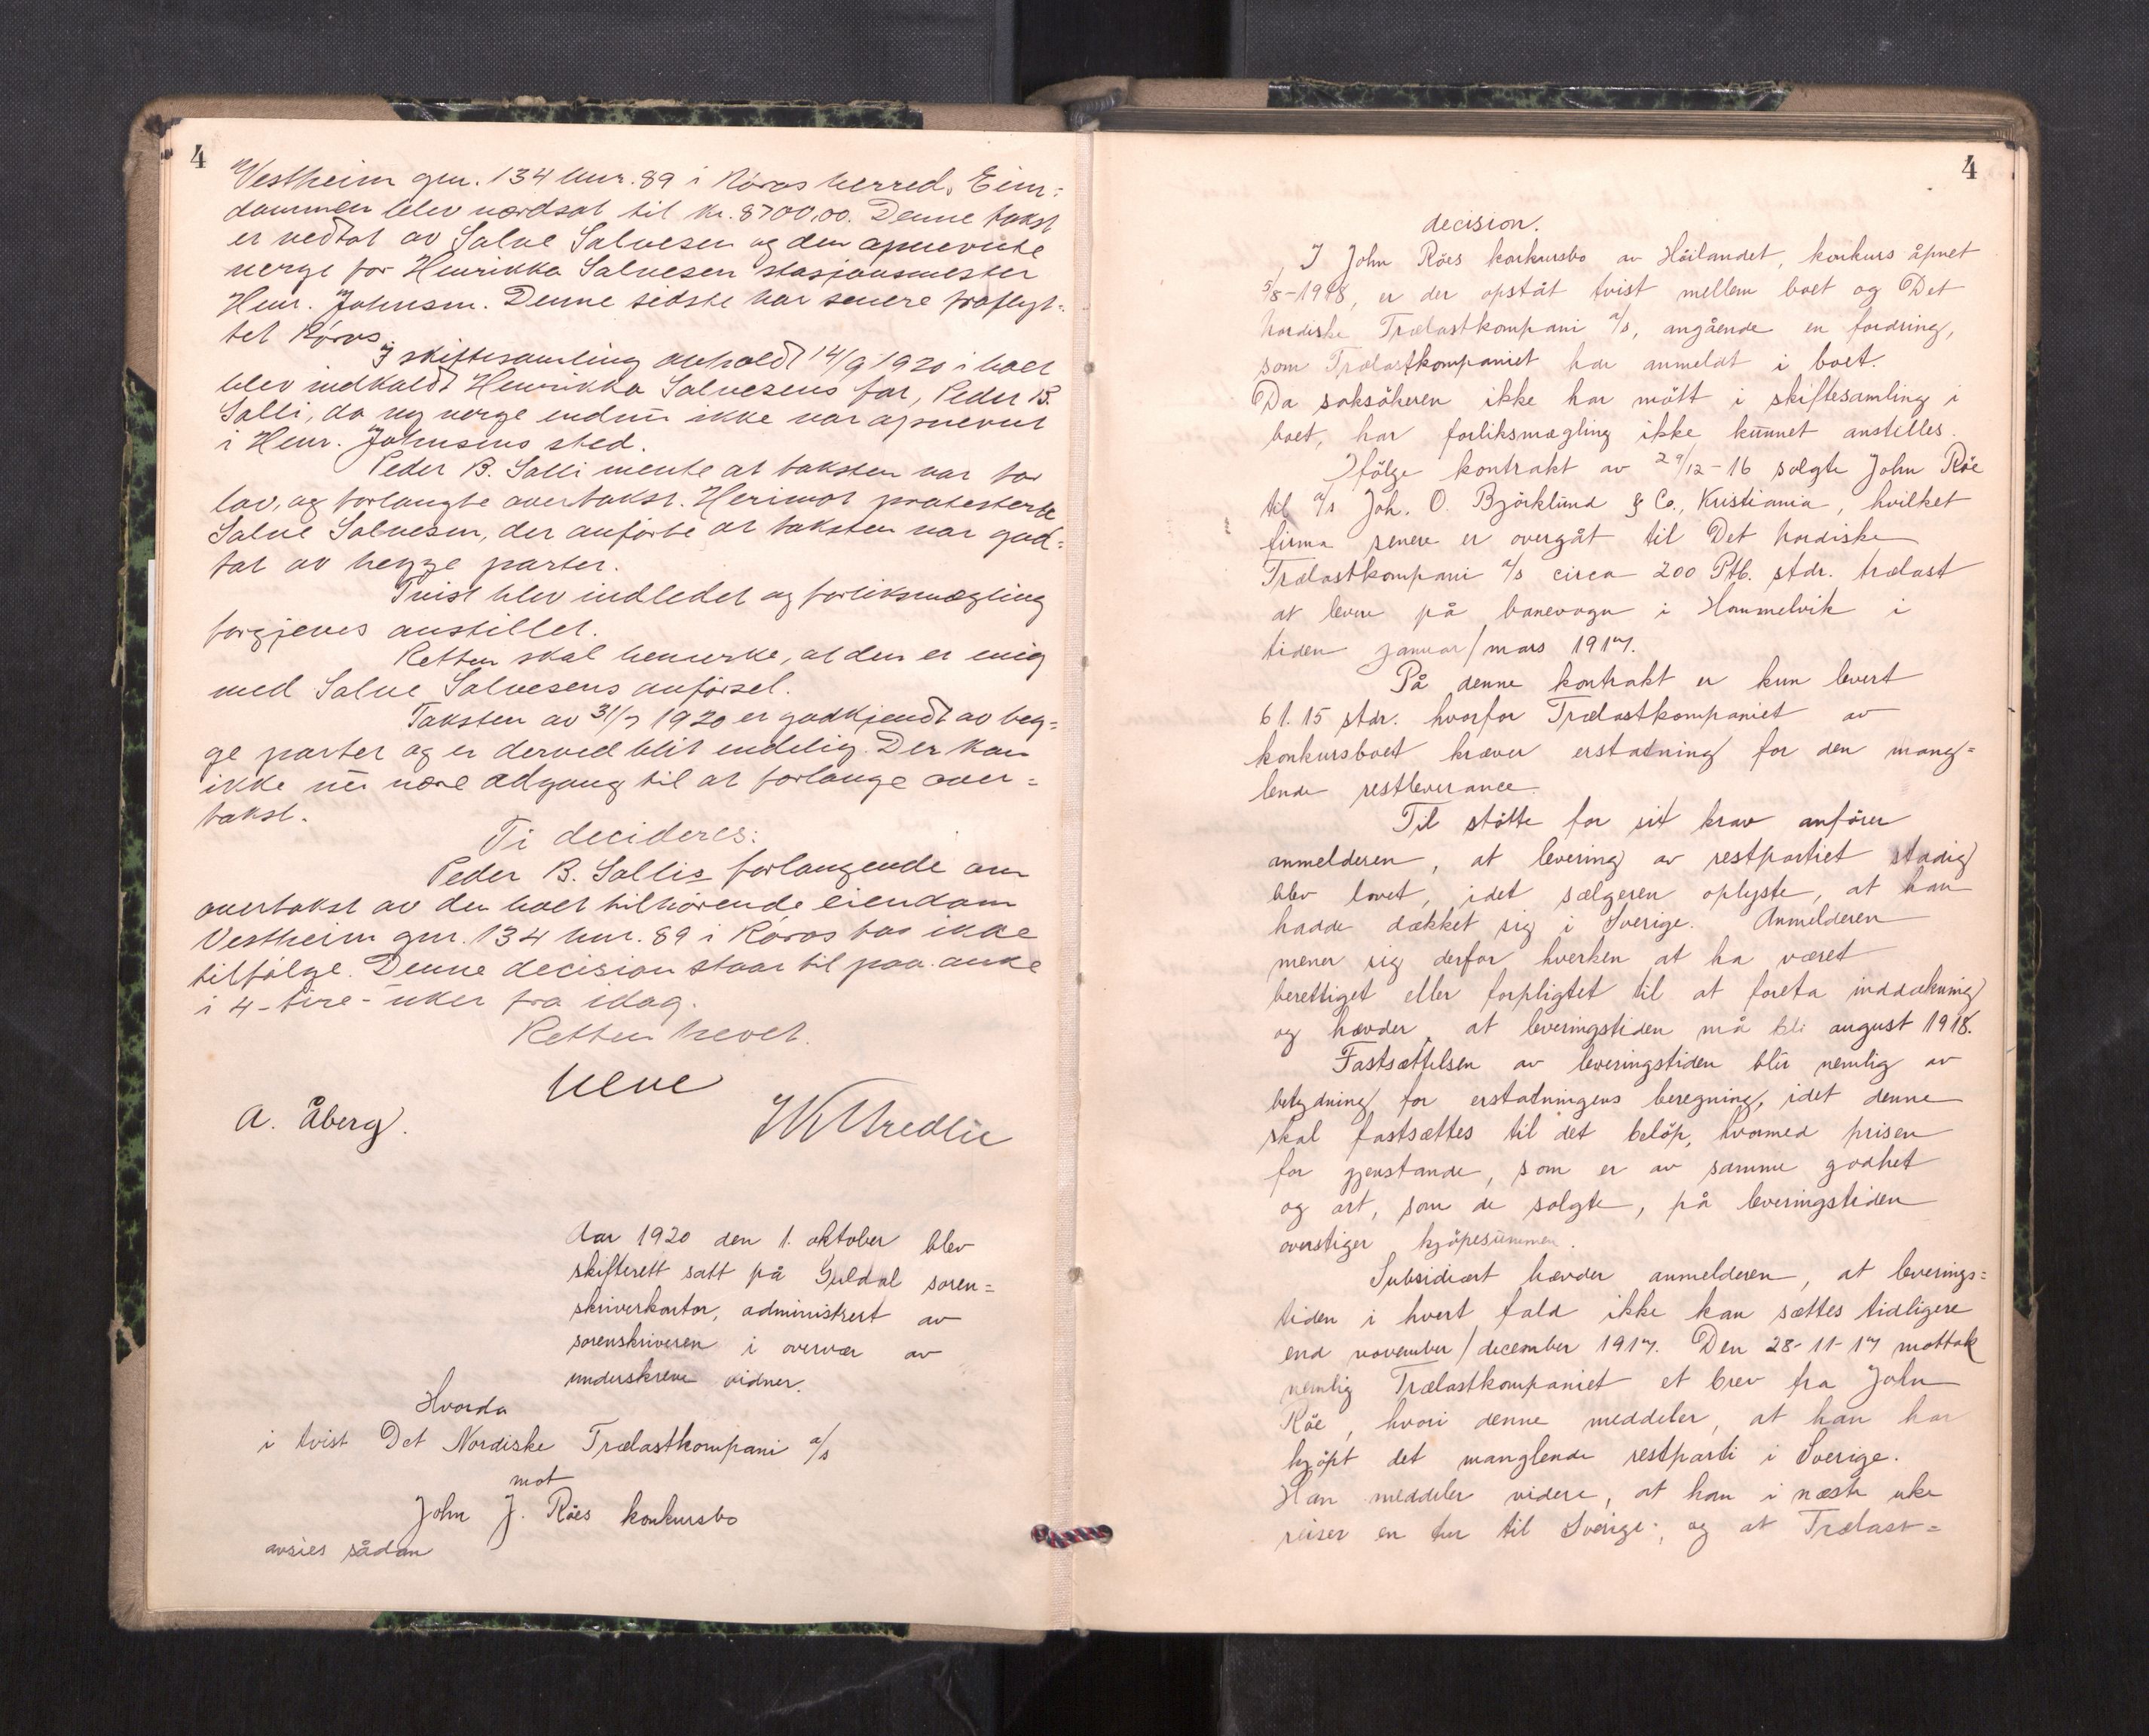 4
Vestheim gnr. 134 bnr. 89 i Röros herred. Eien-
dommen blev værdsat til kr. 8700,00. Denne takst
er vedtat av Salve Salvesen og den opnevnte
verge for Henrikka Salvesen stasjonsmester
Henr. Johnsen. Denne sidste har senere fraflyt-
tet Röros.
I skiftesamling avholdt 14/9 1920 i boet
blev indkaldt Henrikka Salvesens far, Peder B.
Galli, da ny verge endnu ikke var opnevnt
i Henr. Johnsens sted.
Peder B. Galli mente at taksten var for
lav, og forlangte overtakst. Herimot protesterte
Salve Salvesen, der anförte at taksten var god-
tat av begge parter.
Tvist blev indledet og forliksmægling
forgjeves anstillet.
Retten skal bemerke, at den er enig
med Salve Salvesens anförsel.
Taksten av 31/7 1920 er godkjendt av beg-
ge parter og er derved blit endelig. Der kan
ikke nu være adgang til at forlange over-
takst.
Ti decideres:
Peder B. Gallis forlangende om
overtakst av den boet tilhörende eiendom
Vestheim gnr. 134 bnr. 89 i Röros tas ikke
tilfölge. Denne decision staar til paa anke
i 4-fire-uker fra idag.
Retten hevet.
A. Åberg.
Aar 1920 den 1. oktober blev
skifterett satt på Guldal soren-
skriverkontor, administrert av
sorenskriveren i overvær av
underskrevne vidner.
Hvorda
i tvist Det Nordiske Trælastkompani a/s
mot
John J. Röes konkursbo
avsies sådan
4
decision.
I John Röes konkursbo av Höilandet, konkurs åpnet
5/8-1918, er der opståt tvist mellem boet og Det
Nordiske Trælastkompani a/s, angående en fordring,
som Trælastkompaniet har anmeldt i boet.
Da saksökeren ikke har mött i skiftesamling i
boet, har forliksmægling ikke kunnet anstilles.
Ifölge kontrakt av 29/12-16 solgte John Röe
til a/s Joh. O. Björklund & Co., Kristiania, hvilket
firma senere er overgåt til Det Nordiske
Trælastkompani a/s circa 200 Ptb. stdr. trælast
at levere på banevogn i Hommelvik i
tiden januar/mars 1917.
På denne kontrakt er kun levert
61.15 stdr. hvorfor Trælastkompaniet av
konkursboet kræver erstatning for den mang-
lende restleverance.
Til stötte for sit krav anförer
anmelderen, at levering av restpartiet stadig
blev lovet, idet sælgeren oplyste, at han
hadde dækket sig i Sverige. Anmelderen
mener sig derfor hverken at ha været
berettiget eller forpligtet til at foreta inddækning
og hævder, at leveringstiden må bli august 1918.
Fastsættelsen av leveringstiden blir nemlig av
betydning for erstatningens beregning, idet denne
skal fastsættes til det belöp, hvormed prisen
for gjenstande, som er av samme godhet
og art, som de solgte, på leveringstiden
overstiger kjöpesummen.
Subsidiært hævder anmelderen, at leverings-
tiden i hvert fald ikke kan sættes tidligere
end november/december 1917. Den 28-11-17 mottok
nemlig Trælastkompaniet et brev fra John
Röe, hvori denne meddeler, at han har
kjöpt det manglende restparti i Sverige.
Han meddeler videre, at han i næste uke
reiser en tur til Sverige, og at Trælast-